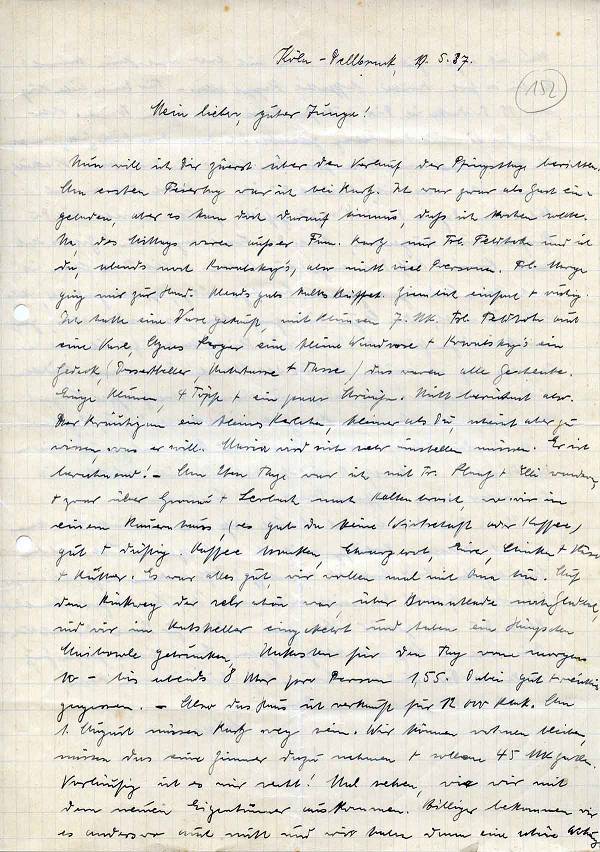 Köln-Dellbrück, 19.5.37.
152
Mein lieber, guter Junge!
Nun will ich Dir zuerst über den Verlauf der Pfingsttage berichten.
Am ersten Feiertag war ich bei Kurtz. Ich war zwar als Gast ein-
geladen, aber es kam doch darauf hinaus, daß ich kochen sollte.
Na, des Mittags waren außer Fam. Kurtz nur Frl. und ich
da, abends noch Kowalsky's, also nicht viel Personen. Frl.
ging mir zur Hand. Abends gabs kaltes Büffet. Ziemlich einfach + ruhig.
Ich hatte eine Vase gekauft, mit Blumen 7. Mk. Frl. auch
eine Vase, Agnes eine kleine Wandvase + Kowalsky's ein
Gedeck, (Dessertteller, Untertasse + Tasse) das waren alle Geschenke.
Einige Blumen, 4 Töpfe + ein paar Sträuße. Nicht berühmt also.
Der Bräutigam ein kleines Kerlchen, kleiner als Du, scheint aber zu
wissen was er will. Maria wird sich sehr umstellen müssen. Er ist
berechnend! - Am 2ten Tage war ich mit Fr. + Elli wandern,
+ zwar über + Lerbach nach Kaltenbroich, wo wir in
einem Bauernhaus, (es gab da keine Wirtschaft oder Kaffee)
gut + Kaffee tranken, Schwarzbrot, Eier, Schinken + Käse
+ Butter. Es war alles gut, wir wollen mal mit Oma hin. Auf
dem Rückweg der sehr schön war, über nach Gladbach,
sind wir im Ratskeller eingekehrt und haben ein
Maibowle getrunken, Unkosten für den Tag von morgens
10 - bis abends 8 Uhr pro Person 1,55. Dabei gut + reichlich
gegessen. - Also das Haus ist verkauft für 12 000 Am
1. August müssen Kurtz weg sein. Wir können wohnen bleiben,
müssen das eine Zimmer dazu nehmen + sollen 45 Mk
Vorläufig ist es mir recht! Mal sehen, wie wir mit
dem neuen Eigentümer auskommen. Billiger bekommen wir
es anderswo auch nicht und wir haben dann eine schöne